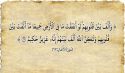 ﴿ وَأَلَّفَ بَيْنَ قُلُوبِهِمْ لَوْ أَنفَقْتَ مَا فِي الْأَرْضِ جَمِيعًا مَا أَلَّفْتَ بَيْنَ
قُلُوبِهِمْ وَلَٰكِنَّ اللَّهَ أَلَّفَ بَيْنَهُمْ إِنَّهُ عَزِيزٌ حَكِيمٌ ﴾